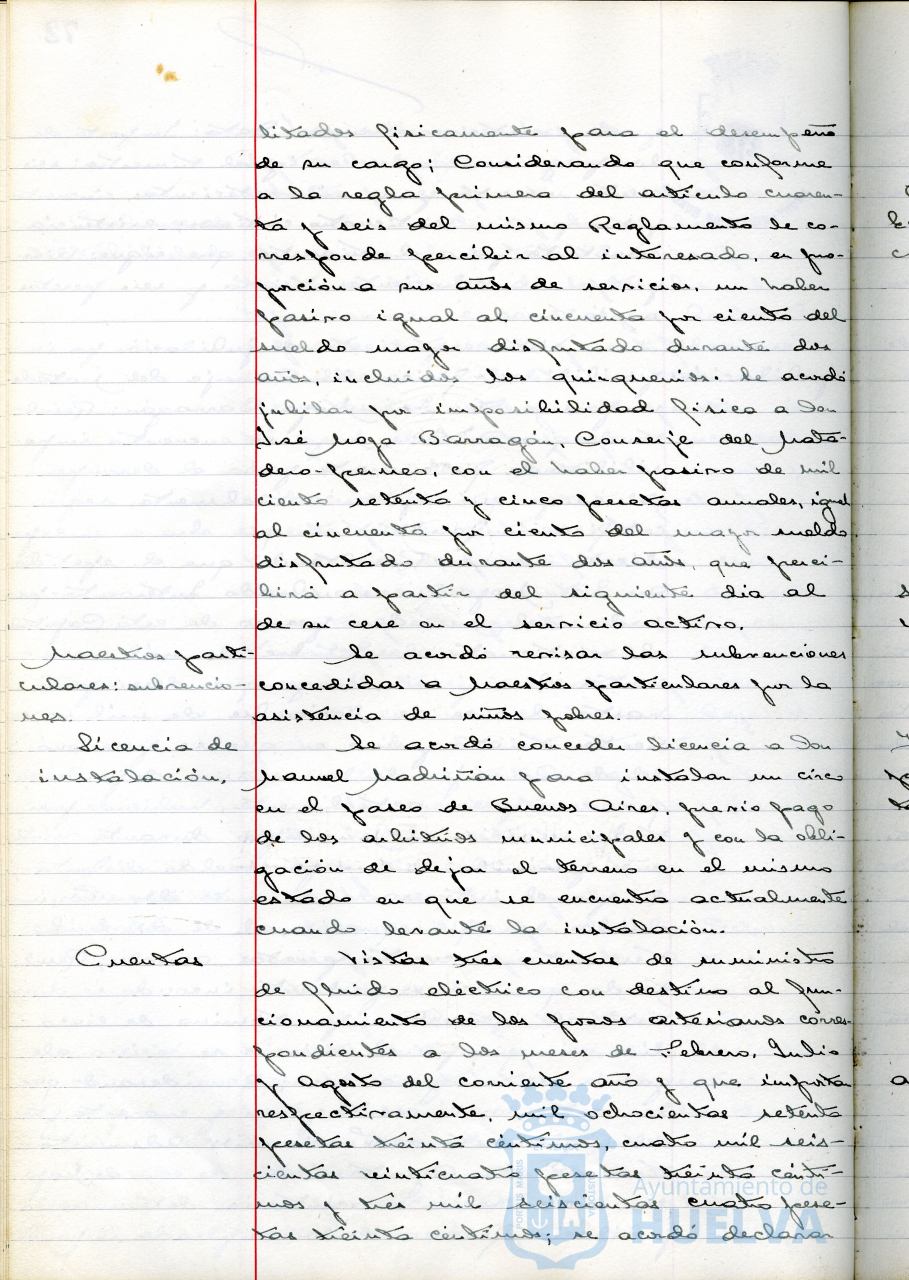 litados fisicamente para el desempeño
de su cargo; Considerando que conforme
a la regla primera del artículo cuaren-
ta y seis del mismo Reglamento le co-
rresponde percibir al interesado, en pro-
porción a sus años de servicios, un haber
pasivo igual al cincuenta por ciento del
sueldo mayor disfrutado durante dos
años, incluidos los quinquenios. Se acordó
jubilar por imposibilidad física a don
José Moga Barragán, Conserje del Mata-
dero-perneo, con el haber pasivo de mil
ciento setenta y cinco pesetas anuales, igual
al cincuenta por ciento del mayor sueldo
disfrutado durante dos años, que perci-
birá a partir del siguiente dia al
de su cese en el servicio activo.
Maestros parti-
culares: subvencio-
nes.
Se acordó revisar las subvenciones
concedidas a Maestros particulares por la
asistencia de niños pobres.
Licencia de
instalación.
Se acordó conceder licencia a don
Manuel para instalar un circo
en el paseo de Buenos Aires, previo pago
de los arbitrios municipales y con la obli-
gación de dejar el terreno en el mismo
estado en que se encuentra actualmente
cuando levante la instalación.
Cuentas
Vistas tres cuentas de suministro
de fluido eléctrico con destino al fun-
cionamiento de los pozos artesianos corres-
pondientes a los meses de Febrero, Julio
y Agosto del corriente año y que importan
respectivamente, mil ochocientas setenta
pesetas treinta céntimos, cuatro mil seis-
cientas veinticuatro pesetas treinta cénti-
mos y tres mil seiscientas cuatro pese-
tas treinta céntimos; se acordó declarar
Ayuntamiento de
HUELVA